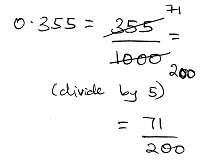 0.355 = 355/1000 = 71/200
(divide by 5)
= 71/200